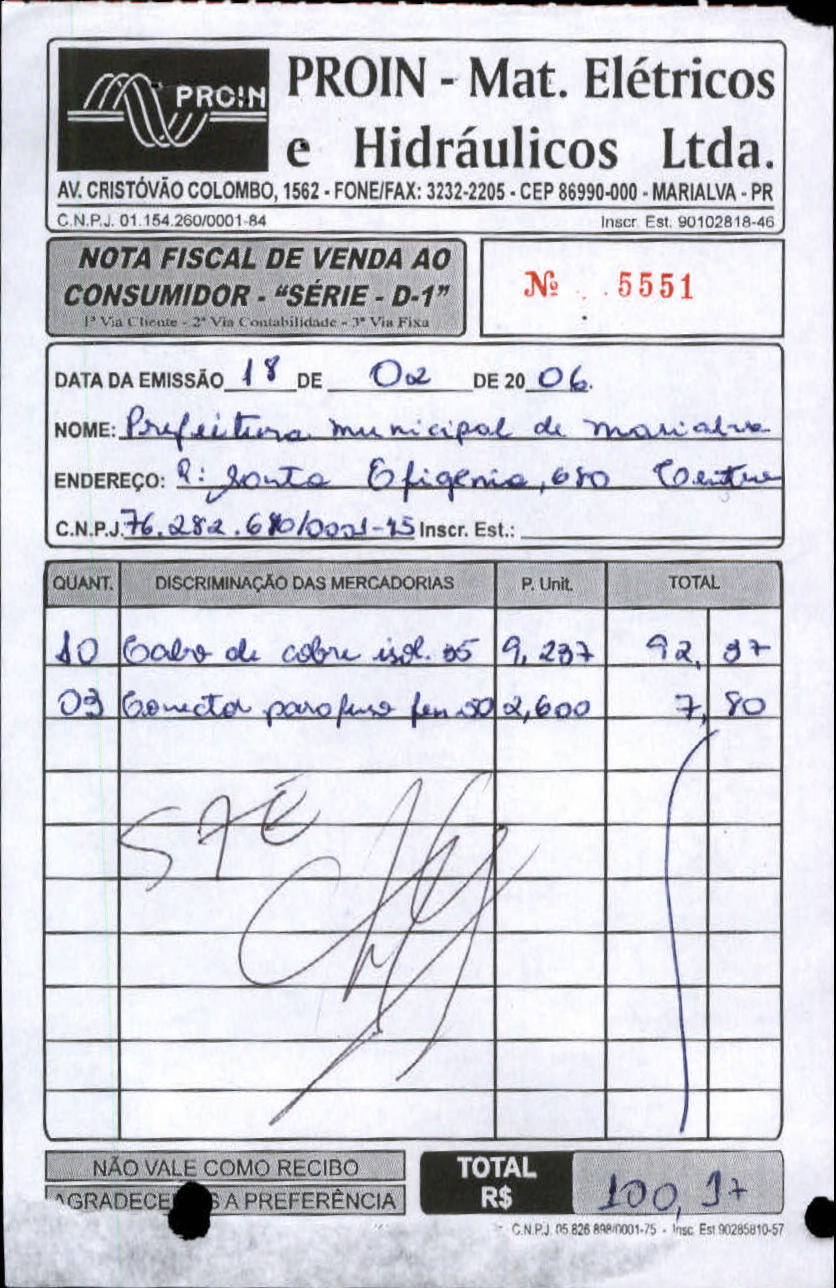 PROIN
PROIN - Mat. Elétricos
e Hidráulicos Ltda.
AV. CRISTÓVÃO COLOMBO, 1562 - FONE/FAX: 3232-2205 - CEP 86990-000 - MARIALVA - PR
C.N.P.J. 01.154.260/0001-84 Inscr. Est. 90102818-46
NOTA FISCAL DE VENDA AO
CONSUMIDOR - "SÉRIE - D-1"
1ª Via Cliente - 2ª Via Contabilidade - 3ª Via Fixa
Nº 5551
DATA DA EMISSÃO 18 DE 02 DE 20 06.
NOME: Prefeitura municipal de marialva
ENDEREÇO: R: Santa Efigênia, 680 Centro
C.N.P.J. 76.282.680/0001-45 Inscr. Est.:
QUANT. DISCRIMINAÇÃO DAS MERCADORIAS P. Unit. TOTAL
10 Cabo de cobre isol. 35 9,237 92,37
03 Conector parafuso fen 50 2,600 7,80
NÃO VALE COMO RECIBO
AGRADECE S A PREFERÊNCIA
TOTAL
R$ 100,17
C.N.P.J. 05.826.898/0001-75 - Insc. Est 90285810-57